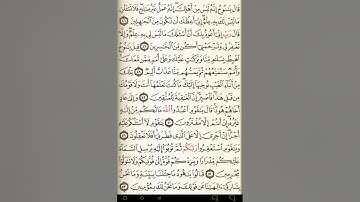 قَالَ يَٰنُوحُ إِنَّهُۥ لَيْسَ مِنْ أَهْلِكَ إِنَّهُۥ عَمَلٌ غَيْرُ صَٰلِحٍ فَلَا تَسْـَٔلْنِ
مَا لَيْسَ لَكَ بِهِۦ عِلْمٌ إِنِّىٓ أَعِظُكَ أَن تَكُونَ مِنَ ٱلْجَٰهِلِينَ ٤٦
قَالَ رَبِّ إِنِّىٓ أَعُوذُ بِكَ أَنْ أَسْـَٔلَكَ مَا لَيْسَ لِى بِهِۦ عِلْمٌ وَإِلَّا
تَغْفِرْ لِى وَتَرْحَمْنِىٓ أَكُن مِّنَ ٱلْخَٰسِرِينَ ٤٧ قِيلَ يَٰنُوحُ
ٱهْبِطْ بِسَلَٰمٍ مِّنَّا وَبَرَكَٰتٍ عَلَيْكَ وَعَلَىٰٓ أُمَمٍ مِّمَّن مَّعَكَ
وَأُمَمٌ سَنُمَتِّعُهُمْ ثُمَّ يَمَسُّهُم مِّنَّا عَذَابٌ أَلِيمٌ ٤٨ تِلْكَ
مِنْ أَنۢبَآءِ ٱلْغَيْبِ نُوحِيهَآ إِلَيْكَ مَا كُنتَ تَعْلَمُهَآ أَنتَ وَلَا قَوْمُكَ
مِن قَبْلِ هَٰذَا فَٱصْبِرْ إِنَّ ٱلْعَٰقِبَةَ لِلْمُتَّقِينَ ٤٩ وَإِلَىٰ
عَادٍ أَخَاهُمْ هُودًا قَالَ يَٰقَوْمِ ٱعْبُدُوا۟ ٱللَّهَ مَا لَكُم مِّنْ إِلَٰهٍ
غَيْرُهُۥٓ إِنْ أَنتُمْ إِلَّا مُفْتَرُونَ ٥٠ يَٰقَوْمِ لَآ أَسْـَٔلُكُمْ عَلَيْهِ
أَجْرًا إِنْ أَجْرِىَ إِلَّا عَلَى ٱلَّذِى فَطَرَنِىٓ أَفَلَا تَعْقِلُونَ ٥١
وَيَٰقَوْمِ ٱسْتَغْفِرُوا۟ رَبَّكُمْ ثُمَّ تُوبُوٓا۟ إِلَيْهِ يُرْسِلِ ٱلسَّمَآءَ
عَلَيْكُم مِّدْرَارًا وَيَزِدْكُمْ قُوَّةً إِلَىٰ قُوَّتِكُمْ وَلَا تَتَوَلَّوْا۟
مُجْرِمِينَ ٥٢ قَالُوا۟ يَٰهُودُ مَا جِئْتَنَا بِبَيِّنَةٍ وَمَا نَحْنُ
بِتَارِكِىٓ ءَالِهَتِنَا عَن قَوْلِكَ وَمَا نَحْنُ لَكَ بِمُؤْمِنِينَ ٥٣